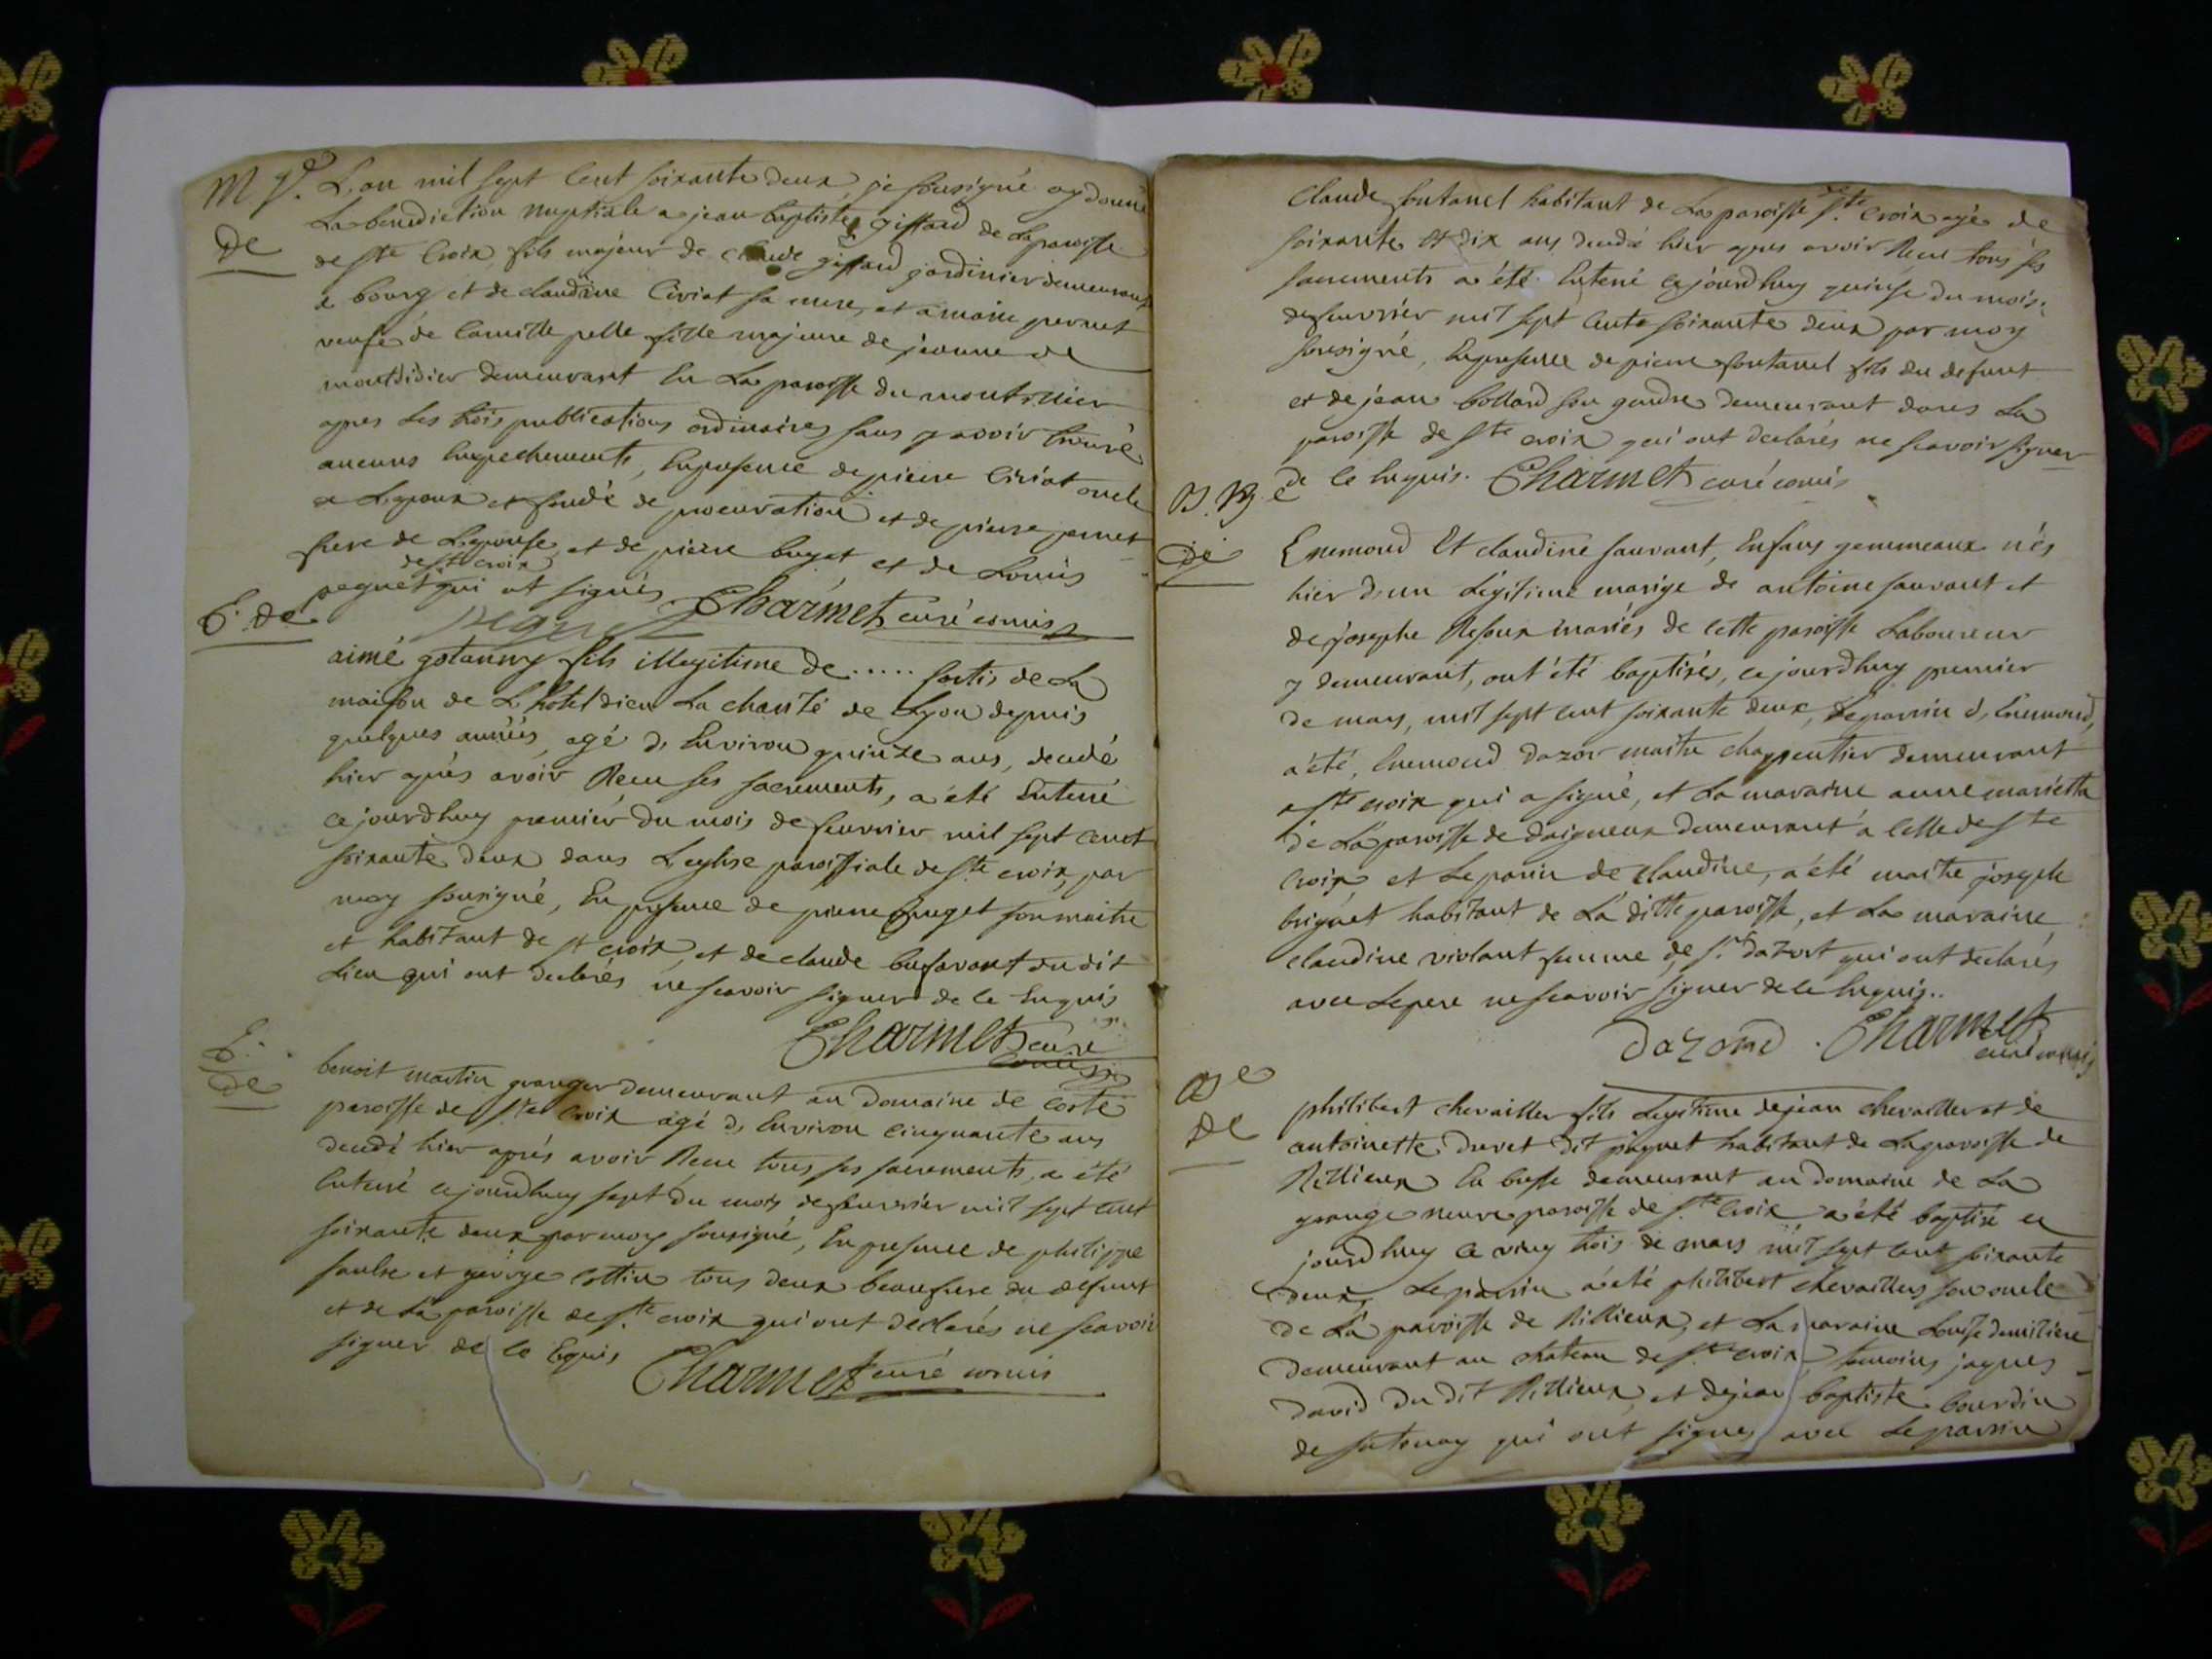 M ge. L'an mil sept cent soixante deux je sousigné ay donné
De La benediction nuptiale a jean baptiste giffard de la paroisse
de ste Croix fils majeur de claude giffard jardinier demeurant
a bourg et de claudine Ciriat sa mere, et a marie pernet
veufe de Camille pelle fille majeure de jeanne de
montdidier demeurant En La paroisse du montellier
apres Les trois publications ordinaires sans y avoir trouvé
aucuns Empechements, En presence de pierre Ciriat oncle
a Lepoux et fondé de procuration et de pierre pernet
frere de Lepouse, et de pierre buget et de Louis
de ste croix
peguet qui ont signés Charmet curé comis
peguet
E. De
aimé gotanny fils illegitime de ..... sortis de La
maison de L'hotel dieu La charité de Lyon depuis
quelques années, agé d'Environ quinze ans, decedé
hier après avoir Receu ses sacrements, a été Enterré
cejourdhuy premier du mois de feuvrier mil sept cent
soixante deux dans L'eglise paroissiale de ste croix par
moy sousigné, En presence de pierre buget son maitre
et habitant de st croix, et de claude bufavant du dit
Lieu qui ont declarés ne scavoir signer de ce Enquis
Charmet curé
comis
E.
De
benoit martin granger demeurant au Domaine de Coste
paroisse de Ste Croix agé d'Environ cinquante ans
decedé hier aprés avoir Receu tous ses sacrements, a été
Enterré cejourdhuy sept du mois de feuvrier mil sept cent
soixante deux par moy sousigné, En presence de philippe
faulse et george cottin tous deux beaufrere du defunt
et de La paroisse de Ste croix qui ont declarés ne scavoir
signer de ce Equis Charmet curé comis
Claude fontanel habitant de La paroisse de Ste Croix agé de
soixante Et dix ans decedé hier apres avoir Receu tous ses
sacrements a été Enterré cejourdhuy quinse du mois
de feuvrier mil sept cents soixante deux par moy
sousigné, En presence de pierre fontanel fils du defunt
et de jean bollard son gendre demeurant dans La
paroisse de ste croix qui ont declarés ne scavoir signer
de ce Enquis. Charmet curé comis
De
Enemond Et claudine sauvant, Enfans gemmeaux nés
hier d'un Légitime mariage de antoine sauvant et
de josephe Resoux mariés de cette paroisse Laboureur
y demeurant, ont été baptisés, cejourdhuy premier
de mars, mil sept cent soixante deux, Le parrin d'Enemond,
a été, Enemond Dazor maitre charpentier demeurant
a ste croix qui a signé, et La maraine anne marietta
de La paroisse de Daigneux demeurant a celle de ste
Croix et Le parin de claudine, a été maitre joseph
briguet habitant de La ditte paroisse, et La maraine
claudine violant femme de sr. dazort qui ont declarés
avec Le pere ne scavoir signer de ce Enquis..
Dazord. Charmet
curé comis
Be
De
philibert chevailler fils Legitime de jean chevailler et de
antoinette duret dit paquet habitant de La paroisse de
Rillieux En bresse demeurant au domaine de La
grange neuve paroisse de ste Croix a été baptisé ce
jourdhuy Ce ving trois de mars mil sept cent soixante
deux, Le parrin a été philibert chevailler son oncle
de La paroisse de Rillieux, et La maraine Louise demiliere
demeurant au chateau de ste croix, temoins jaques
david du dit Rillieux, et de jean baptiste bourdin
de satonay qui ont signés avec Le parrin